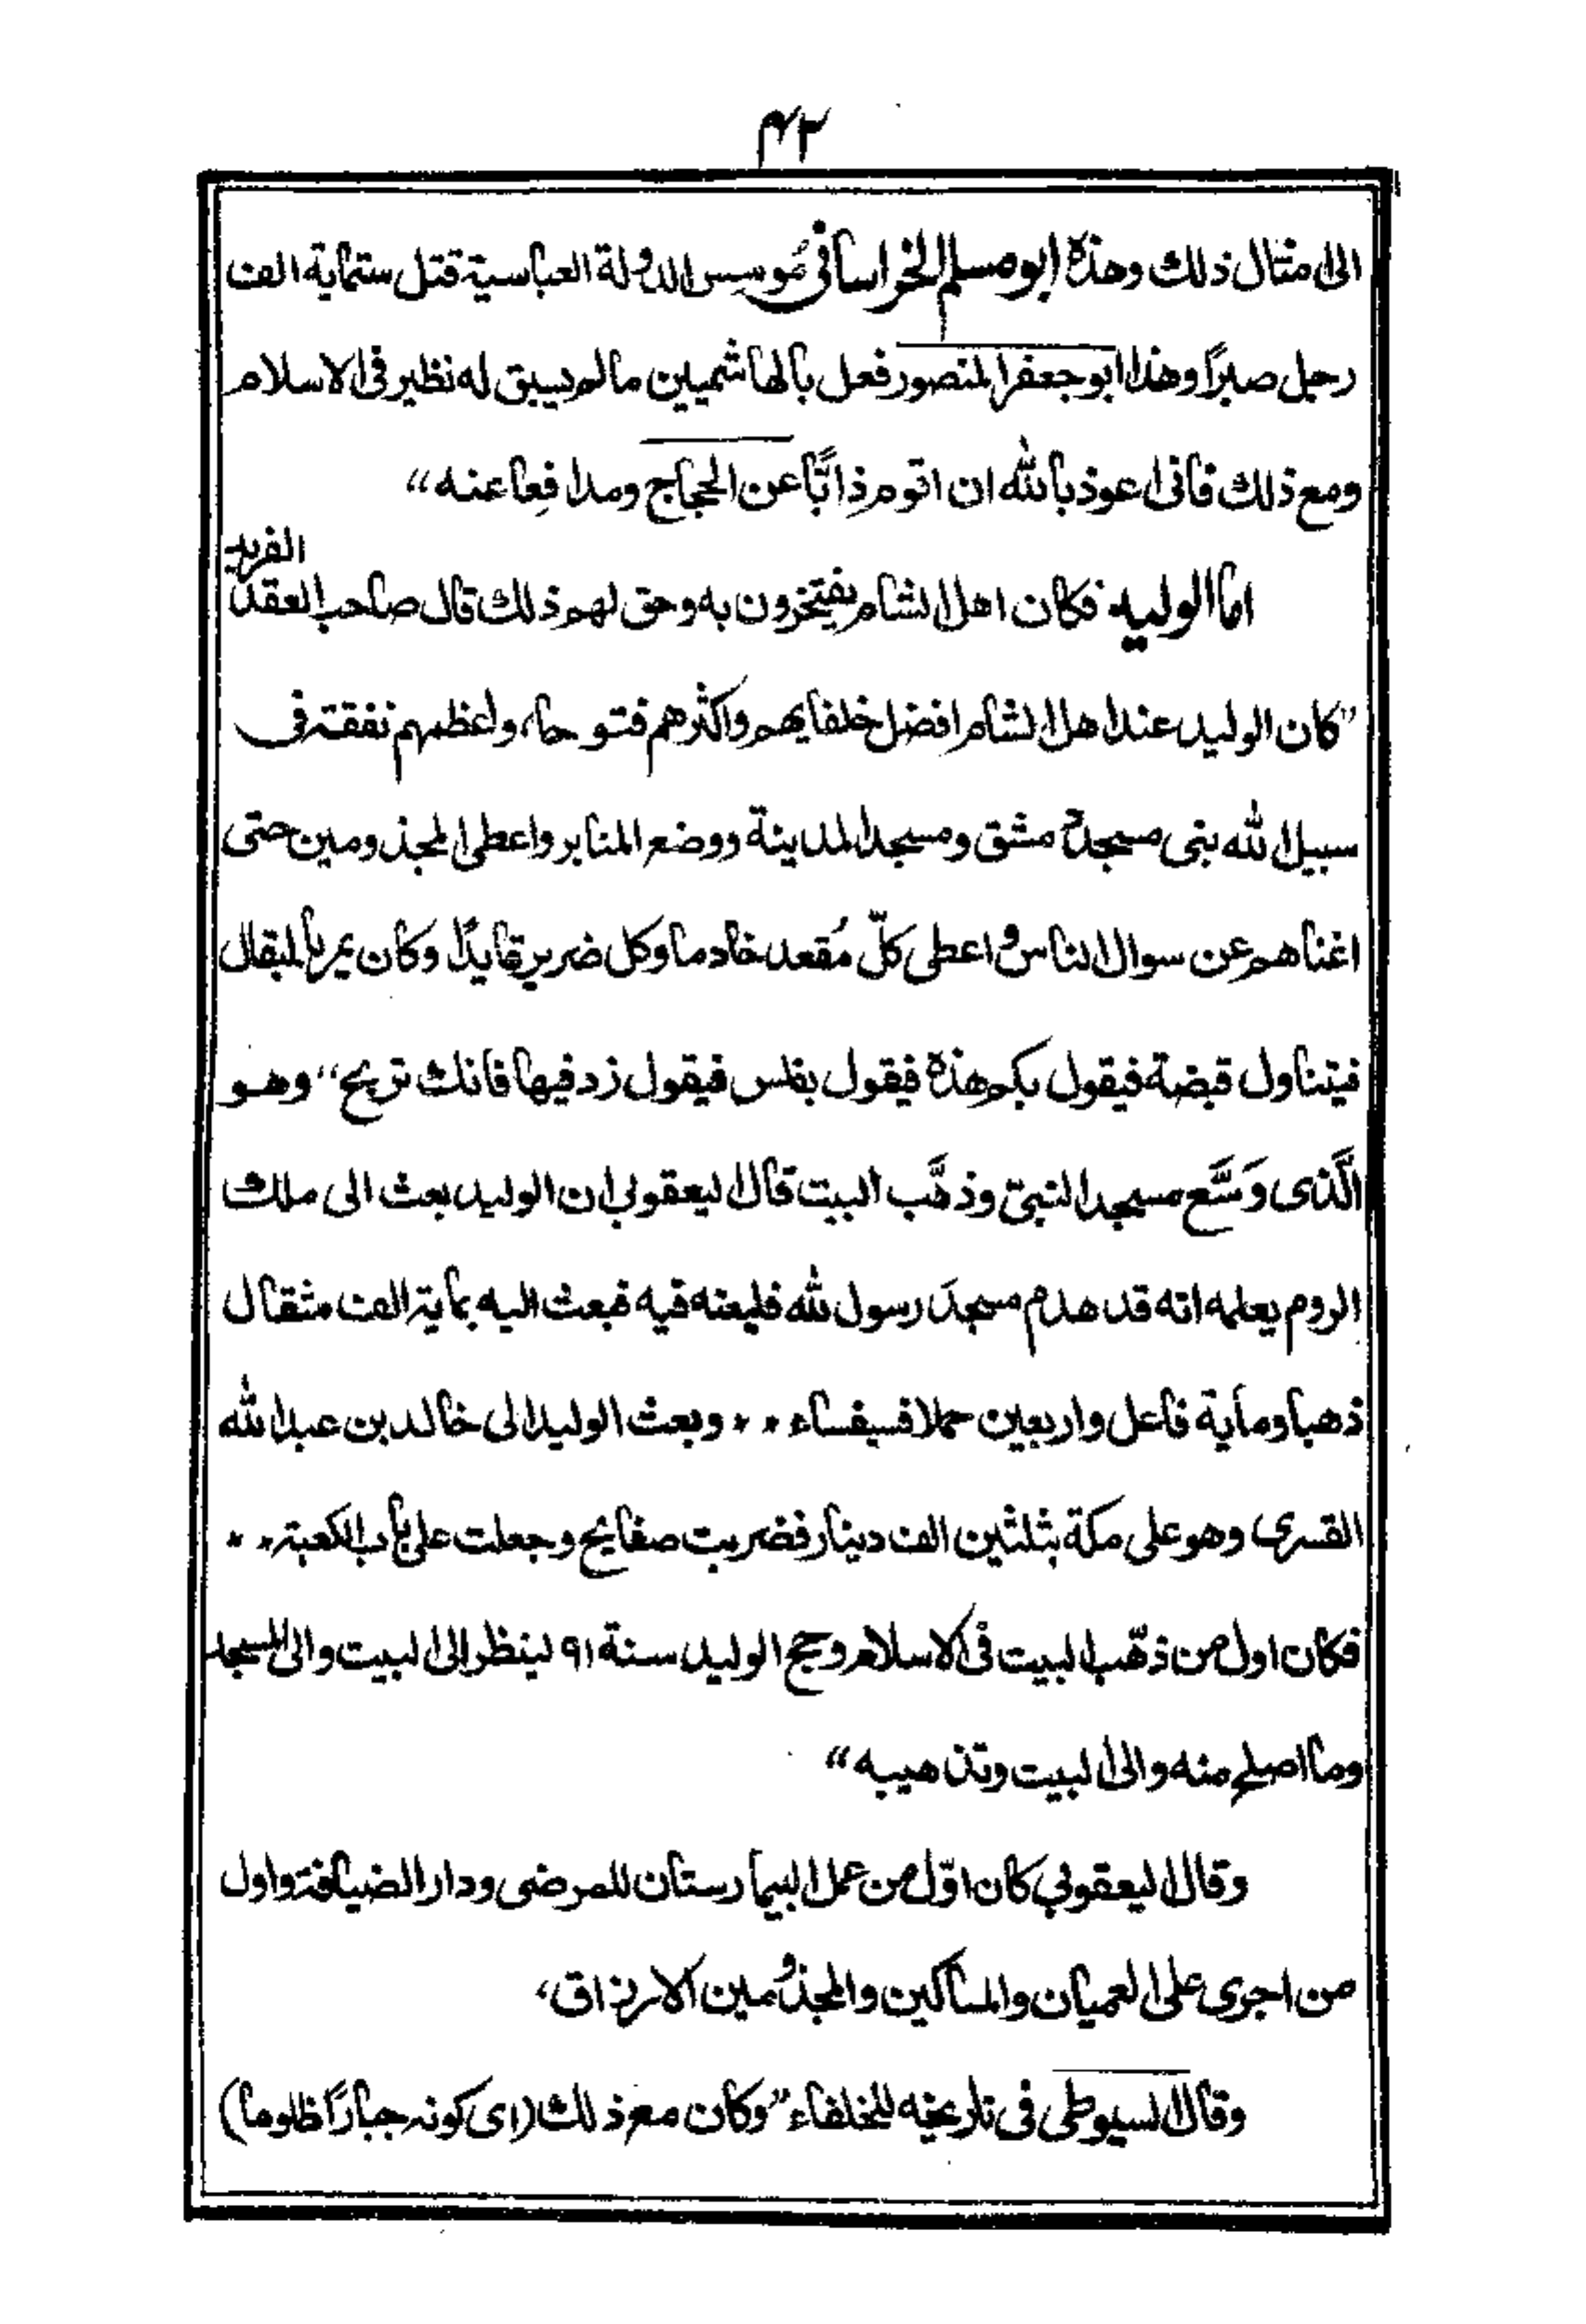 ٤٢
الى امثال ذلك وهذه ابو مسلم الخراسانى مُوسس الدولة العباسية قتل ستماية الف
رجل صبرًا وهذا ابو جعفر المنصور فعل بالهاشميين مالم يسبق له نظير فى الاسلام
ومع ذلك فانى اعوذ بالله ان اقوم ذابًّا عن الحجاج ومدافِعا عنه“
اما الوليد فكان اهل الشام يفتخرون به وحق لهم ذلك قال صاحب العقد الفريد
”كان الوليد عند اهل الشام افضل خلفايهم واكثرهم فتوحا، واعظمهم نفقة فى
سبيل الله بنى مسجد دمشق ومسجد المدينة ووضع المنابر واعطى المجذومين حتى
اغناهم عن سوال الناس واعطى كلّ مُقعد خادما وكل ضرير قايدًا وكان يمر بالبقال
فيتناول قبضة فيقول بكم هذه فيقول بفلس فيقول زد فيها فانك تربح“ وهو
الَّذى وَسَّع مسجد النبىّ وذهَّب البيت قال اليعقوبى ان الوليد بعث الى ملك
الروم يعلمه انه قد هدم مسجدَ رسول لله فليعنه فيه فبعث اليه بماية الف مثقال
ذهبا وماية فاعل واربعين حملا فسيفساء ٠ ٠ وبعث الوليد الى خالد بن عبد الله
القسرى وهو على مكة بثلثين الف دينار فضربت صفايح وجعلت على باب الكعبة ٠ ٠
فكان اول من ذهّب البيت فى الاسلام وحج الوليد سنة ٩١ لينظر الى البيت والى المسجد
وما اصلح منه والى البيت وتذهيبه“
وقال اليعقوبي كان اوّل من عمل البيمارستان للمرضى ودار الضيافة واول
من اجرى على العميان والمساكين والمجذُومين الارزاق،
وقال السيوطى فى تاريخه للخلفاء ”وكان مع ذلك (اى كونه جبارًا ظلوما)